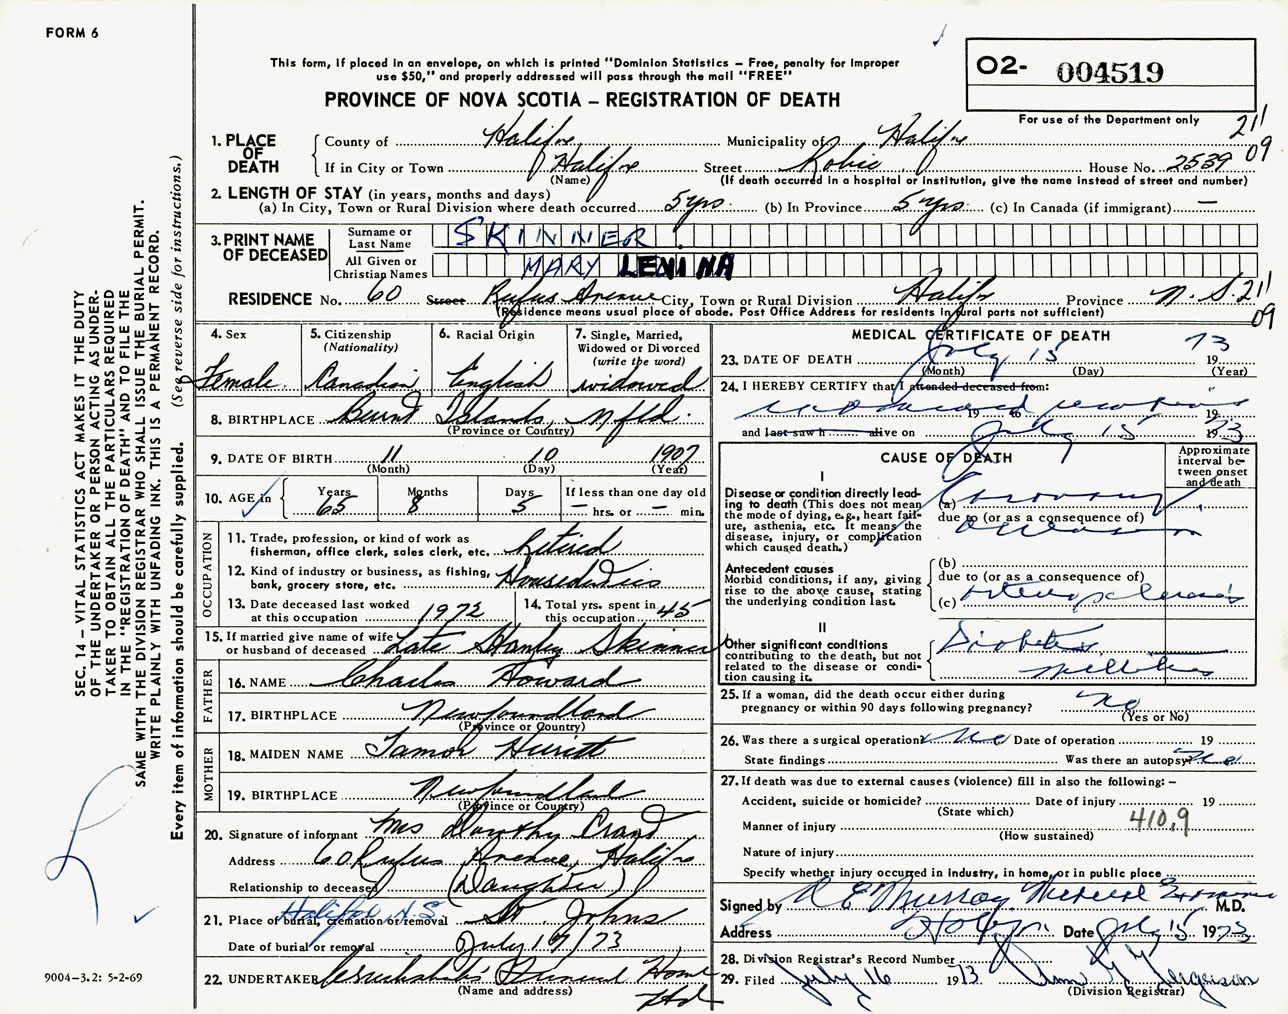 FORM 6
This form, if placed in an envelope, on which is printed "Dominion Statistics – Free, penalty for improper
use $50," and properly addressed will pass through the mail "FREE"
PROVINCE OF NOVA SCOTIA – REGISTRATION OF DEATH
O2- 004519
For use of the Department only
211
09
1. PLACE OF DEATH
County of Halifax Municipality of Halifax
If in City or Town Halifax Street Robie House No. 2539
(Name) (If death occurred in a hospital or institution, give the name instead of street and number)
2. LENGTH OF STAY (in years, months and days)
(a) In City, Town or Rural Division where death occurred 5 yrs. (b) In Province 5 yrs. (c) In Canada (if immigrant) —
3. PRINT NAME OF DECEASED
Surname or Last Name SKINNER
All Given or Christian Names MARY LENINA
RESIDENCE No. 60 Street Rufus Avenue City, Town or Rural Division Halifx Province N.S. 211
09
(Residence means usual place of abode. Post Office Address for residents in rural parts not sufficient)
4. Sex Female
5. Citizenship (Nationality) Canadian
6. Racial Origin English
7. Single, Married, Widowed or Divorced (write the word) widowed
8. BIRTHPLACE Burnt Islands, Nfld.
(Province or Country)
9. DATE OF BIRTH 11 10 1907
(Month) (Day) (Year)
10. AGE in Years 65 Months 8 Days 5 If less than one day old — hrs. or — min.
OCCUPATION
11. Trade, profession, or kind of work as fisherman, office clerk, sales clerk, etc. Retired
12. Kind of industry or business, as fishing, bank, grocery store, etc. Houseduties
13. Date deceased last worked at this occupation 1972
14. Total yrs. spent in this occupation 45
15. If married give name of wife or husband of deceased Late Stanley Skinner
FATHER
16. NAME Charles Howard
17. BIRTHPLACE Newfoundland
(Province or Country)
MOTHER
18. MAIDEN NAME Tamor
19. BIRTHPLACE Newfoundland
(Province or Country)
20. Signature of informant Mrs Dorothy
Address 60 Rufus Avenue, Halifx
Relationship to deceased (Daughter)
21. Place of burial, cremation or removal Halifax N.S. St. Johns
Date of burial or removal July 17/73
22. UNDERTAKER Cruikshank's Funeral Home
Ltd
(Name and address)
MEDICAL CERTIFICATE OF DEATH
23. DATE OF DEATH July 15 1973
(Month) (Day) (Year)
24. I HEREBY CERTIFY that I attended deceased from:
19 19
and last saw h alive on July 15 1973
CAUSE OF DEATH
Approximate interval between onset and death
I
Disease or condition directly leading to death (This does not mean the mode of dying, e.g., heart failure, asthenia, etc. It means the disease, injury, or complication which caused death.)
(a) Coronary
due to (or as a consequence of)
occlusion
Antecedent causes
Morbid conditions, if any, giving rise to the above cause, stating the underlying condition last.
(b)
due to (or as a consequence of)
(c) arteriosclerosis
II
Other significant conditions contributing to the death, but not related to the disease or condition causing it.
Diabetes
mellitus
25. If a woman, did the death occur either during pregnancy or within 90 days following pregnancy? no
(Yes or No)
26. Was there a surgical operation? no Date of operation 19
State findings Was there an autopsy? no
27. If death was due to external causes (violence) fill in also the following: –
Accident, suicide or homicide? Date of injury 19
(State which)
Manner of injury 410.9
(How sustained)
Nature of injury
Specify whether injury occurred in industry, in home, or in public place
Signed by R E Murray Medical Examiner M.D.
Address Halifax Date July 15 1973
28. Division Registrar's Record Number
29. Filed July 16 1973 Ann Ferguson
(Division Registrar)
SEC. 14 – VITAL STATISTICS ACT MAKES IT THE DUTY
OF THE UNDERTAKER OR PERSON ACTING AS UNDER-
TAKER TO OBTAIN ALL THE PARTICULARS REQUIRED
IN THE "REGISTRATION OF DEATH" AND TO FILE THE
SAME WITH THE DIVISION REGISTRAR WHO SHALL ISSUE THE BURIAL PERMIT.
WRITE PLAINLY WITH UNFADING INK. THIS IS A PERMANENT RECORD.
Every item of information should be carefully supplied. (See reverse side for instructions.)
9004–3.2: 5-2-69